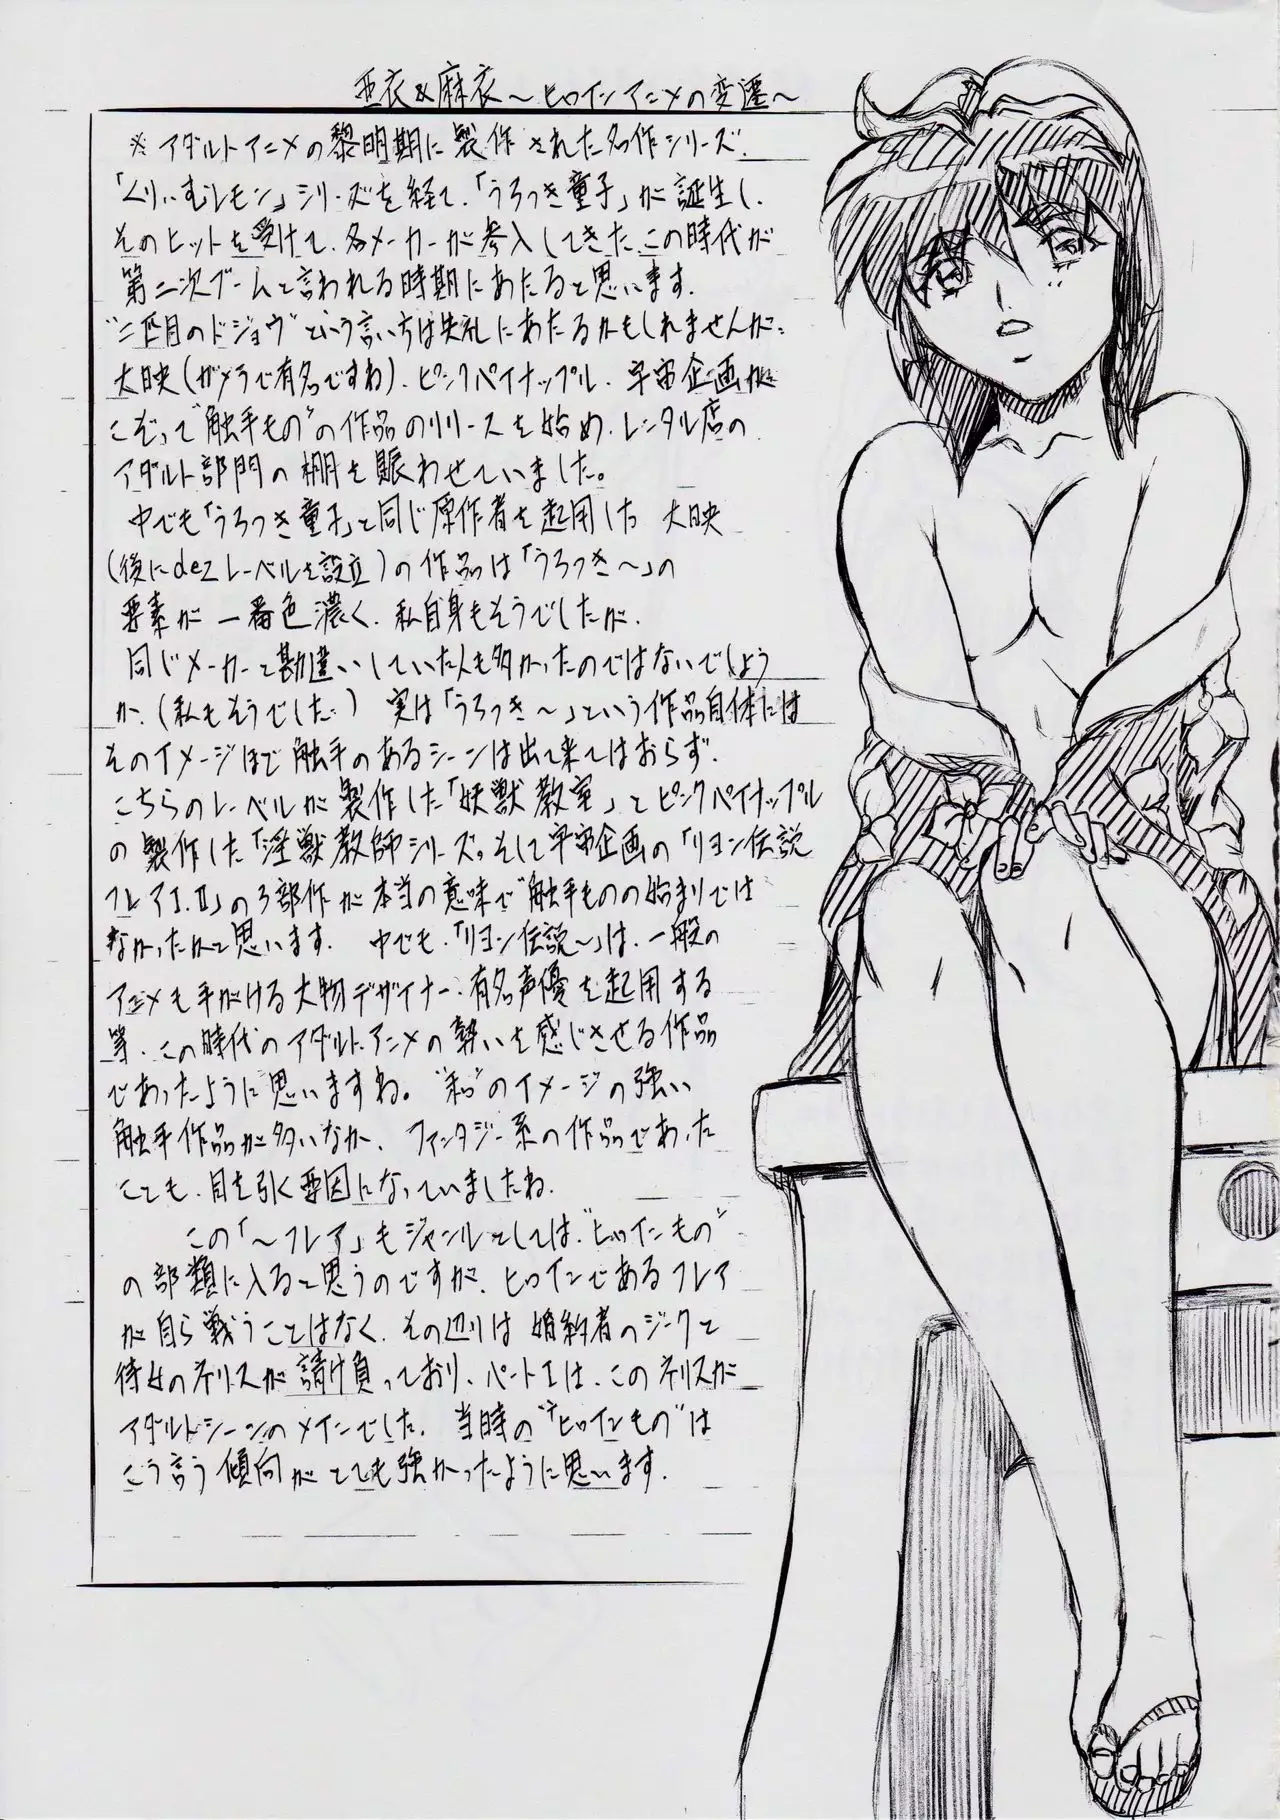 亜衣&麻衣～ヒロインアニメの変遷～
※アダルトアニメの黎明期に製作された名作シリーズ.
「くりぃむレモン」シリーズを経て、「うろつき童子」が誕生し、
そのヒットを受けて、各メーカーが参入してきたこの時代が
第二次ブームと言われる時期にあたると思います.
“二匹目のドジョウ”という言い方は失礼にあたるかもしれませんが、
大映(ガメラで有名ですね)、ピンクパイナップル、宇宙企画が
こぞって“触手もの”の作品のリリースを始め、レンタル店の
アダルト部門の棚を賑わせていました。
中でも「うろつき童子」と同じ原作者を起用した 大映
(後にdezレーベルを設立)の作品は「うろつき～」の
要素が一番色濃く、私自身もそうでしたが、
同じメーカーと勘違いしていた人も多かったのではないでしょう
か、(私もそうでした.) 実は「うろつき～」という作品自体には
そのイメージほど触手のあるシーンは出て来てはおらず、
こちらのレーベルが製作した「妖獣教室」とピンクパイナップル
の製作した「淫獣教師シリーズ」。そして宇宙企画の「リヨン伝説
フレアⅠ.Ⅱ」の3部作が本当の意味で“触手ものの始まりでは
なかったかと思います. 中でも、「リヨン伝説～」は、一般の
アニメも手がける大物デザイナー、有名声優を起用する
等、この時代のアダルトアニメの勢いを感じさせる作品
であったように思いますね。“和”のイメージの強い
触手作品が多いなか、ファンタジー系の作品であった
ことも、目を引く要因になっていましたね.
この「～フレア」もジャンルとしては“ヒロインもの”
の部類に入ると思うのですが、ヒロインであるフレア
が自ら戦うことはなく、その辺りは婚約者のジークと
侍女のネリスが請け負っており、パートⅠは、このネリスが
アダルトシーンのメインでした. 当時の“ヒロインもの”は
こう言う傾向がとても強かったように思います.